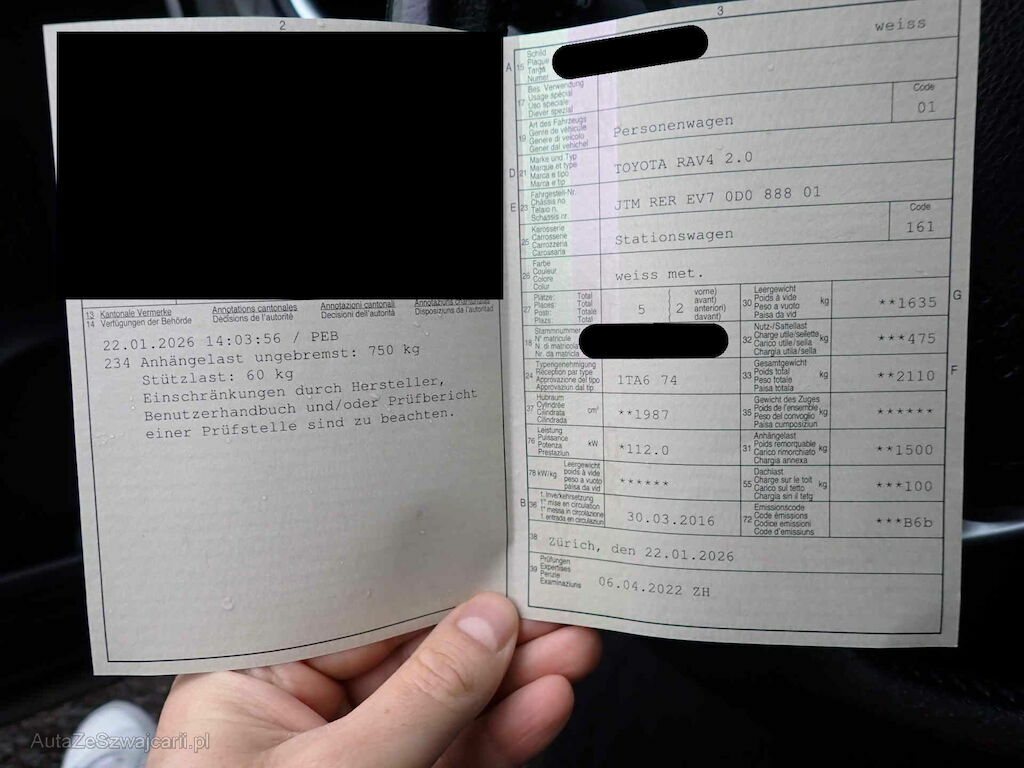 2
13 Kantonale Vermerke Annotations cantonales Annotazioni cantonali Annotaziuns chantunalas
14 Verfügungen der Behörde Décisions de l'autorité Decisioni dell'autorità Disposiziuns da l'autoritad
22.01.2026 14:03:56 / PEB
234 Anhängelast ungebremst: 750 kg
Stützlast: 60 kg
Einschränkungen durch Hersteller,
Benutzerhandbuch und/oder Prüfbericht
einer Prüfstelle sind zu beachten.
3
A 15 Schild
Plaque
Targa
Numer
weiss
17 Bes. Verwendung
Usage spécial
Uso speciale
Diever spezial
Code
01
19 Art des Fahrzeugs
Genre de véhicule
Genere di veicolo
Gener dal vehichel
Personenwagen
D 21 Marke und Typ
Marque et type
Marca e tipo
Marca e tip
TOYOTA RAV4 2.0
E 23 Fahrgestell-Nr.
Châssis no
Telaio n.
Schassis nr.
JTM RER EV7 0D0 888 01
25 Karosserie
Carrosserie
Carrozzeria
Carossaria
Stationswagen
Code
161
26 Farbe
Couleur
Colore
Colur
weiss met.
27 Plätze: Total
Places: Total
Posti: Totale
Plazs: Total
5
2
vorne)
avant)
anteriori)
davant)
30 Leergewicht
Poids à vide
Peso a vuoto
Paisa da vid
kg
**1635
G
18 Stammnummer
N° matricule
N. di matricola
Nr. da matricla
32 Nutz-/Sattellast
Charge utile/sellette
Carico utile/sella
Chargia utila/sella
kg
***475
24 Typengenehmigung
Réception par type
Approvazione del tipo
Approvaziun dal tip
1TA6 74
33 Gesamtgewicht
Poids total
Peso totale
Paisa totala
kg
**2110
F
37 Hubraum
Cylindrée
Cilindrata
Cilindrada
cm³
**1987
35 Gewicht des Zuges
Poids de l'ensemble
Peso del convoglio
Paisa cumposiziun
kg
******
76 Leistung
Puissance
Potenza
Prestaziun
kW
*112.0
31 Anhängelast
Poids remorquable
Carico rimorchiato
Chargia annexa
kg
**1500
78 kW/kg
Leergewicht
poids à vide
peso a vuoto
paisa da vid
******
55 Dachlast
Charge sur le toit
Carico sul tetto
Chargia sin il tetg
kg
***100
B 36 1. Inverkehrsetzung
1re mise en circulation
1a messa in circolazione
1. entrada en circulaziun
30.03.2016
72 Emissionscode
Code émissions
Codice emissioni
Code d'emissiuns
***B6b
38 Zürich, den 22.01.2026
39 Prüfungen
Expertises
Perizie
Examinaziuns
06.04.2022 ZH
AutaZeSzwajcarii.pl